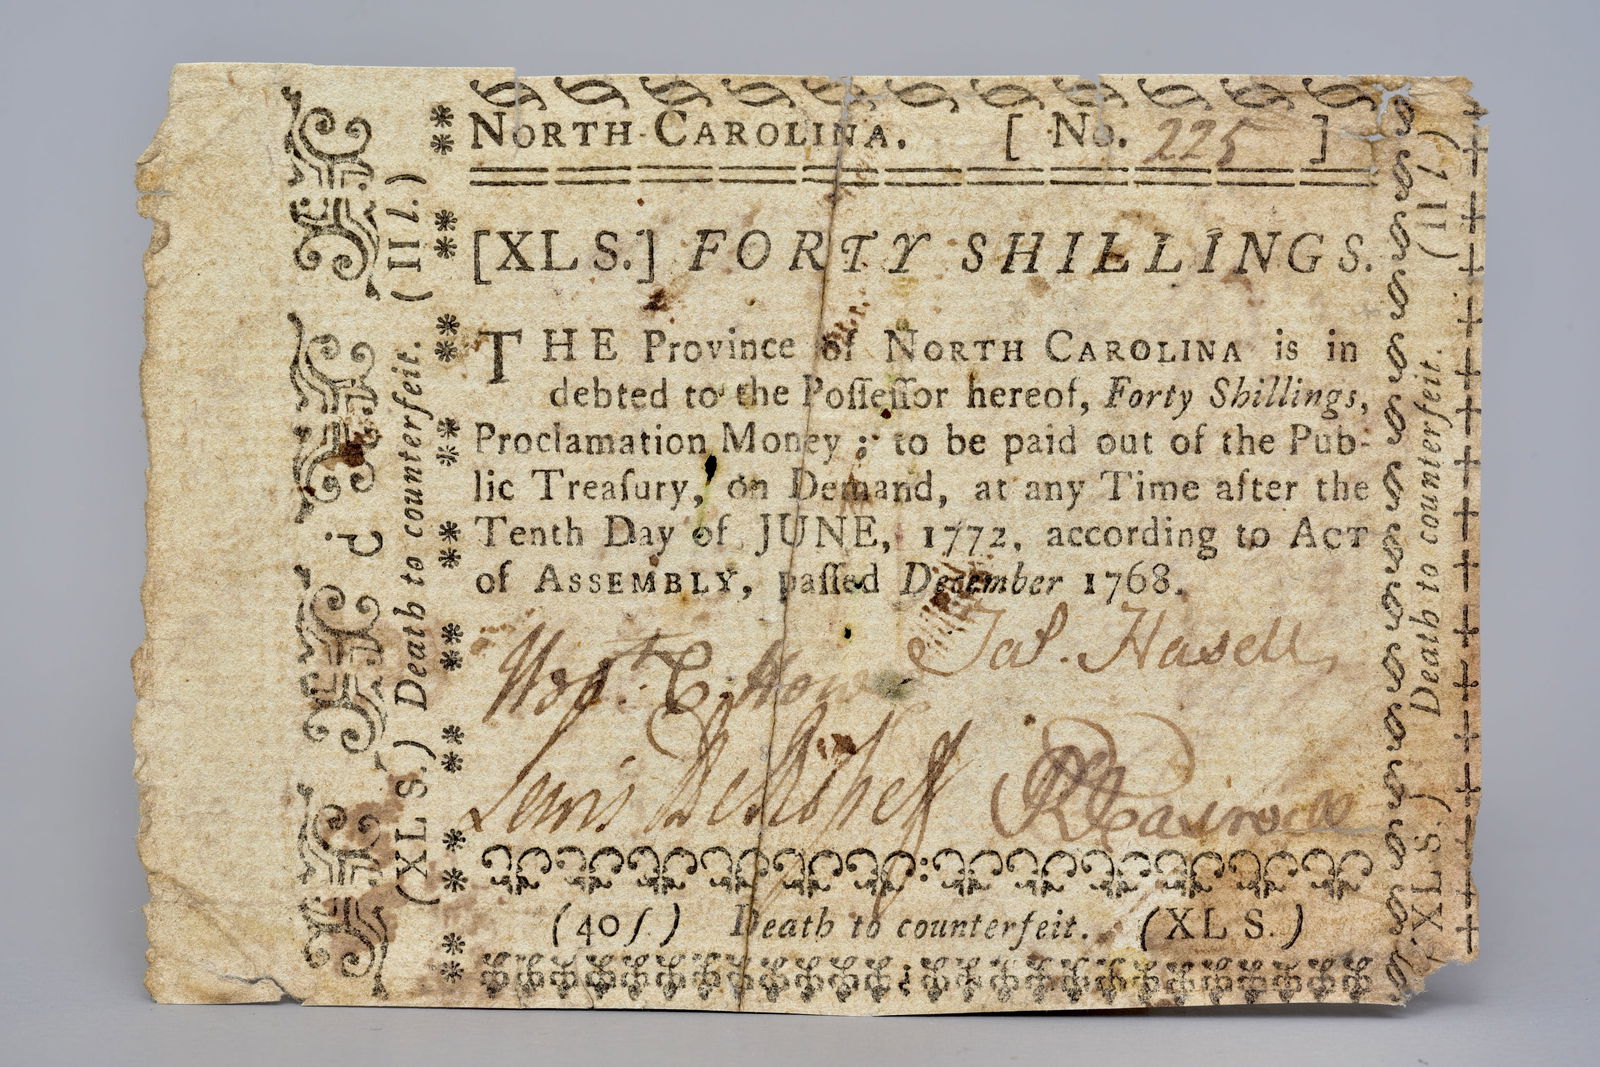 NORTH CAROLINA. [ No. 225 ]
[XL S.] FORTY SHILLINGS.
THE Province of NORTH CAROLINA is in
debted to the Poſſeſſor hereof, Forty Shillings,
Proclamation Money; to be paid out of the Pub-
lic Treaſury, on Demand, at any Time after the
Tenth Day of JUNE, 1772, according to ACT
of ASSEMBLY, paſſed December 1768.
Jas. Hasell
Lewis
(40ſ.) Death to counterfeit. (XL S.)
(XL S.) Death to counterfeit. (II l.)
(XL S.) Death to counterfeit. (II l.)